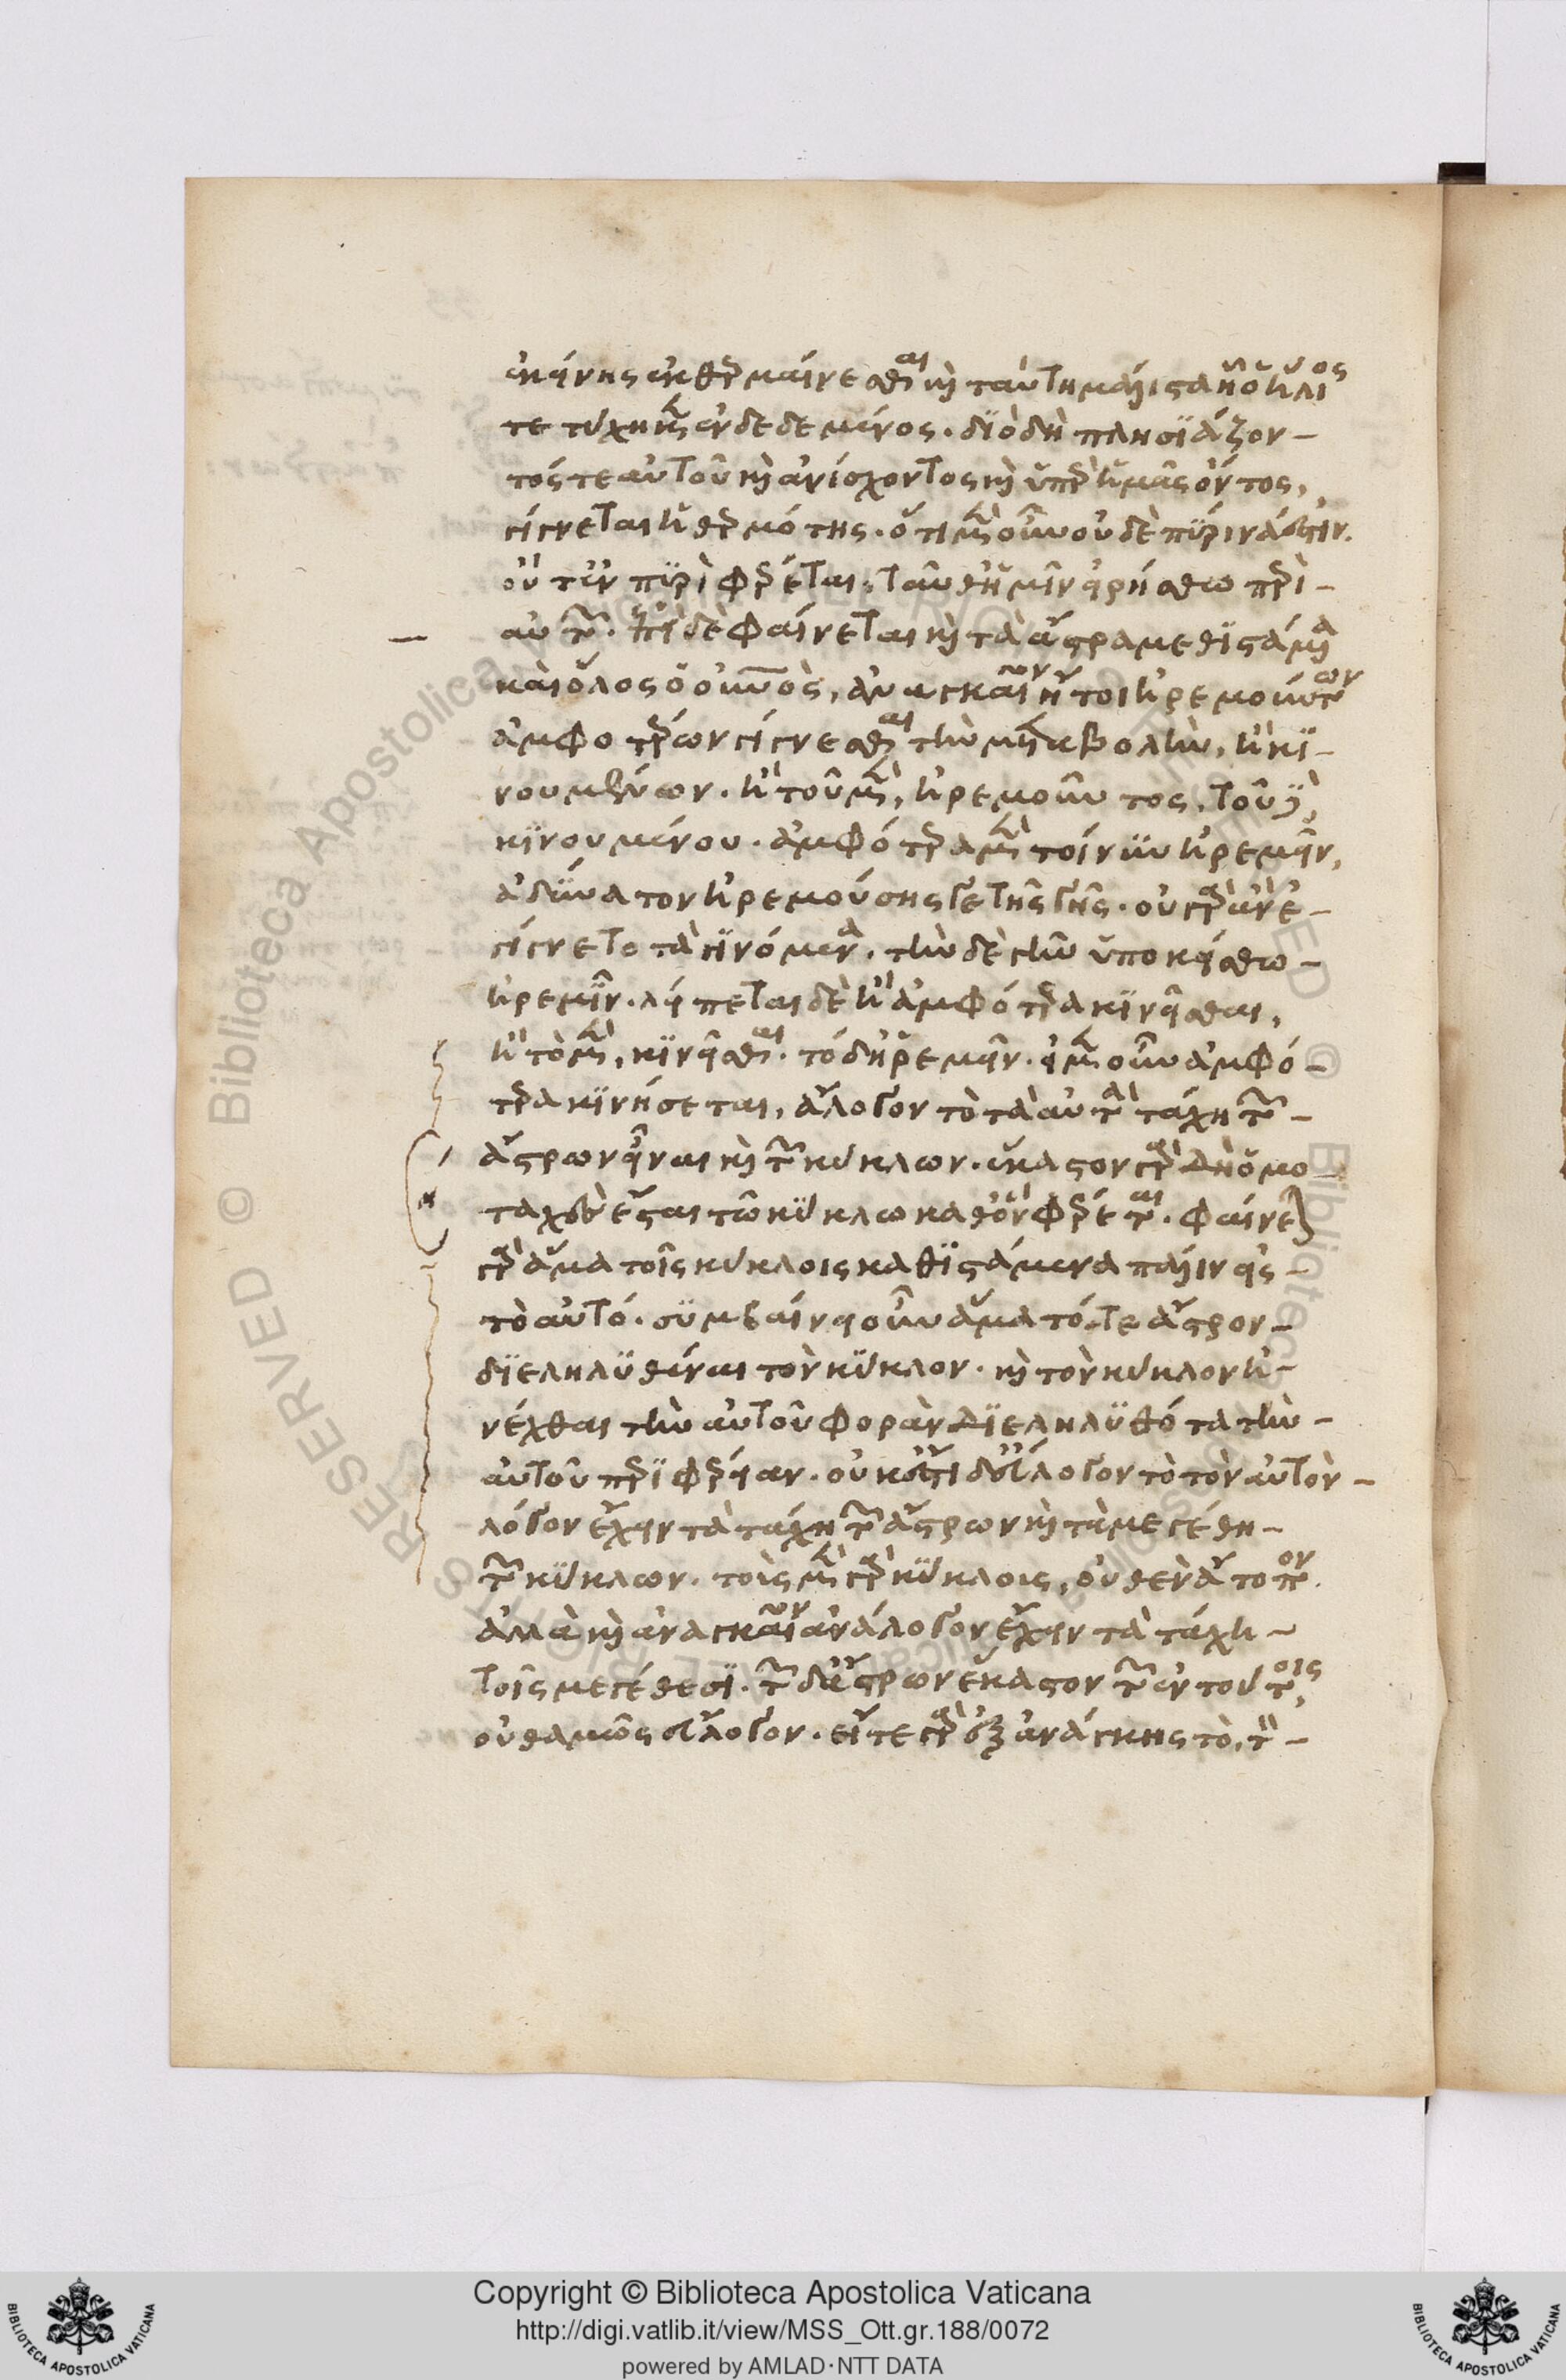 ἐκείνης ἐκθερμαίνεσθαι καὶ ταύτη μάλιστα ἧ ὁ ἥλιος
τετύχηκεν ἐνδεδεμένος. διὸ δὴ πλησιάζον-
τός τε αὐτοῦ καὶ ἀνίσχοντος καὶ ὑπὲρ ἡμᾶς ὄντος,
γίγνεται ἡ θερμότης. ὅτι μὲν οὖν οὐδὲ πύρινά ἐστιν.
οὔτ' ἐν πυρὶ φέρεται, ταῦθ' ἡμῖν εἰρήσθω περὶ-
αὐτῶν. ἐπεὶ δὲ φαίνεται καὶ τὰ ἄστρα μεθιστάμενα
καὶ ὅλος ὁ οὐνος, ἀναγκαῖον ἤτοι ἠρεμούντων
ἀμφοτέρων γίγνεσθαι τὴν μεταβολὴν, ἢ κι-
νουμένων. ἢ τοῦ μὲν, ἠρεμοῦντος. τοῦ δὲ,
κινουμένου. ἀμφότερα μὲν τοίνυν ἠρεμεῖν,
ἀδύνατον ἠρεμούσης γε τῆς γῆς. οὐ γὰρ ἂν ἐ-
γίγνετο τὰ γινόμενα. τὴν δὲ γῆν ὑποκείσθω-
ἠρεμεῖν. λείπεται δὲ ἢ ἀμφότερα κινεῖσθαι,
ἢ τὸ μὲν, κινεῖσθαι. τὸ δ' ἠρεμεῖν. εἰ μὲν οὖν ἀμφό-
τερα κινήσεται, ἄλογον τὸ τὰ αὐτὰ τάχη τῶν-
ἄστρων εἶναι καὶ τῶν κύκλων. ἕκαστον γὰρ δὴ ὁμο
ταχὲς ἔσται τῶ κύκλω καθ' ὃν φέρεται. φαίνεται
γὰρ ἅμα τοῖς κύκλοις καθιστάμενα πάλιν εἰς-
τὸ αὐτό. συμβαίνει οὖν ἅμα τό, τε ἄστρον-
διεληλυθέναι τὸν κύκλον. καὶ τὸν κύκλον ἠ-
νέχθαι τὴν αὐτοῦ φορὰν διεληλυθότα τὴν-
αὐτοῦ περιφέρειαν. οὐκ ἔστι δ' εὔλογον τὸ τὸν αὐτὸν-
λόγον ἔχειν τὰ τάχη τῶν ἄστρων καὶ τὰ μεγέθη-
τῶν κύκλων. τοῖς μὲν γὰρ κύκλοις, οὐθὲν ἄτοπον.
ἀλλὰ καὶ ἀναγκαῖον ἀνάλογον ἔχειν τὰ τάχη-
τοῖς μεγέθεσι. τῶν δ' ἄστρων ἕκαστον τῶν ἐν τούτοις,
οὐθαμῶς εὔλογον. εἴτε γὰρ ἐξ ἀνάγκης τὸ, τὸν-